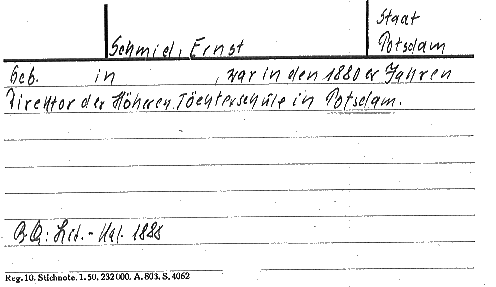 Staat
Schmid, Ernst Potsdam
Geb. in , war in den 1880er Jahren
Direktor der Höheren Töchterschule in Potsdam.
B.Q: Lit.-Kal. 1888
Reg. 10. Stichnote. 1. 50. 232000. A. 803. S. 4062